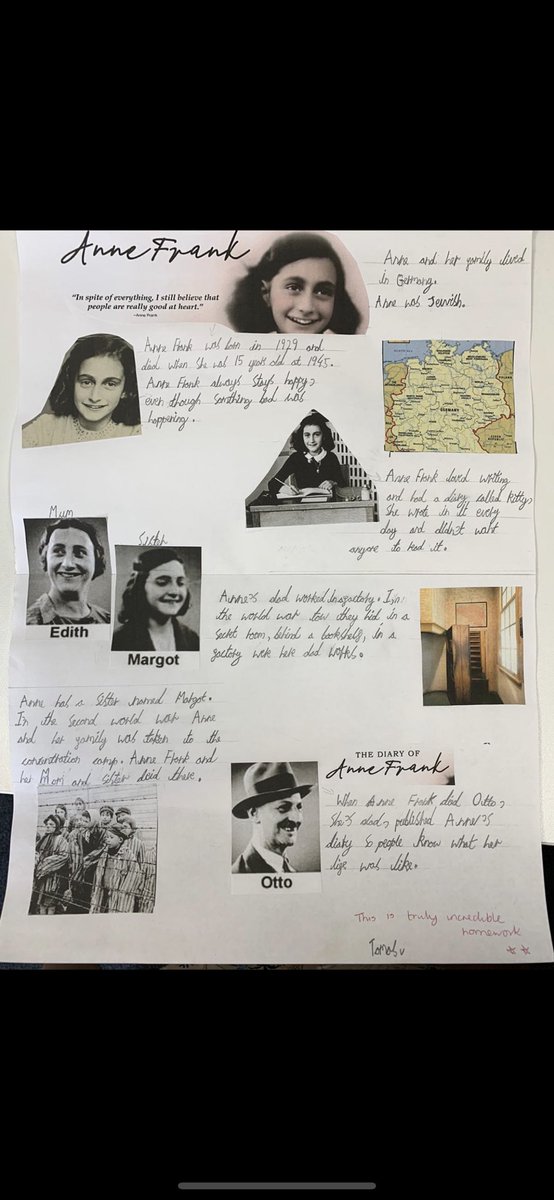 Anne Frank
"In spite of everything, I still believe that
people are really good at heart."
-Anne Frank
Anne and her family lived
in Germany.
Anne was Jewish.
Anne Frank was born in 1929 and
died when she was 15 years old at 1945.
Anne Frank always stays happy,
even though somthing bad was
happering.
GERMANY
Anne Frank loved writing
and had a diary called Kitty,
She wrote in it every
day and didn't want
anyone to read it.
Mum
Sister
Edith
Margot
Anne's dad worked in a factory. In
the world war tow they hid in a
secret room, behind a bookshelf, in a
factory were here dad works.
Anne has a sister named Margot.
In the second world war Anne
and her family was taken to the
concentration camp. Anne Frank and
her Mom and sister deid there.
THE DIARY OF
Anne Frank
When Anne Frank died Otto,
She's dad, published Anne's
diary so people know what her
life was like.
Otto
This is truly incredible
homework